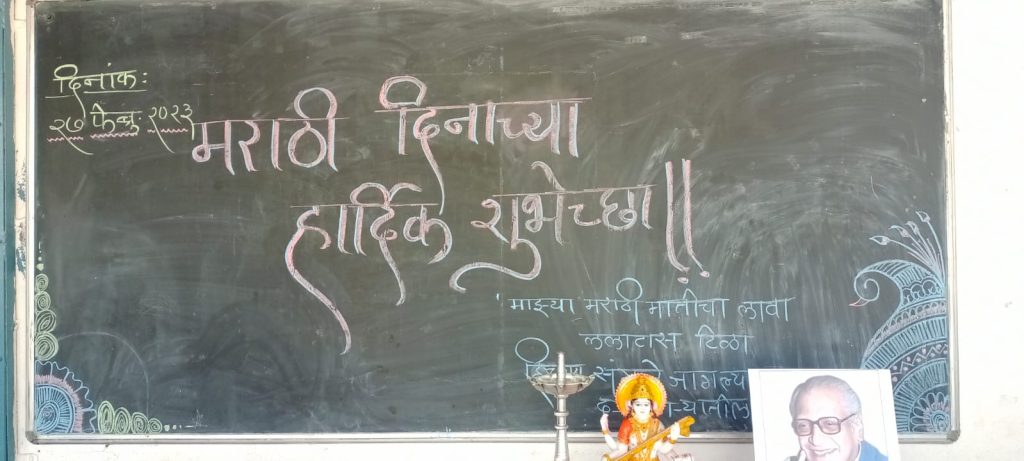 दिनांक:
२७ फेब्रु. २०२३
मराठी दिनाच्या
हार्दिक शुभेच्छा!!
'माझ्या मराठी मातीचा लावा
ललाटास टिळा
जागल्या